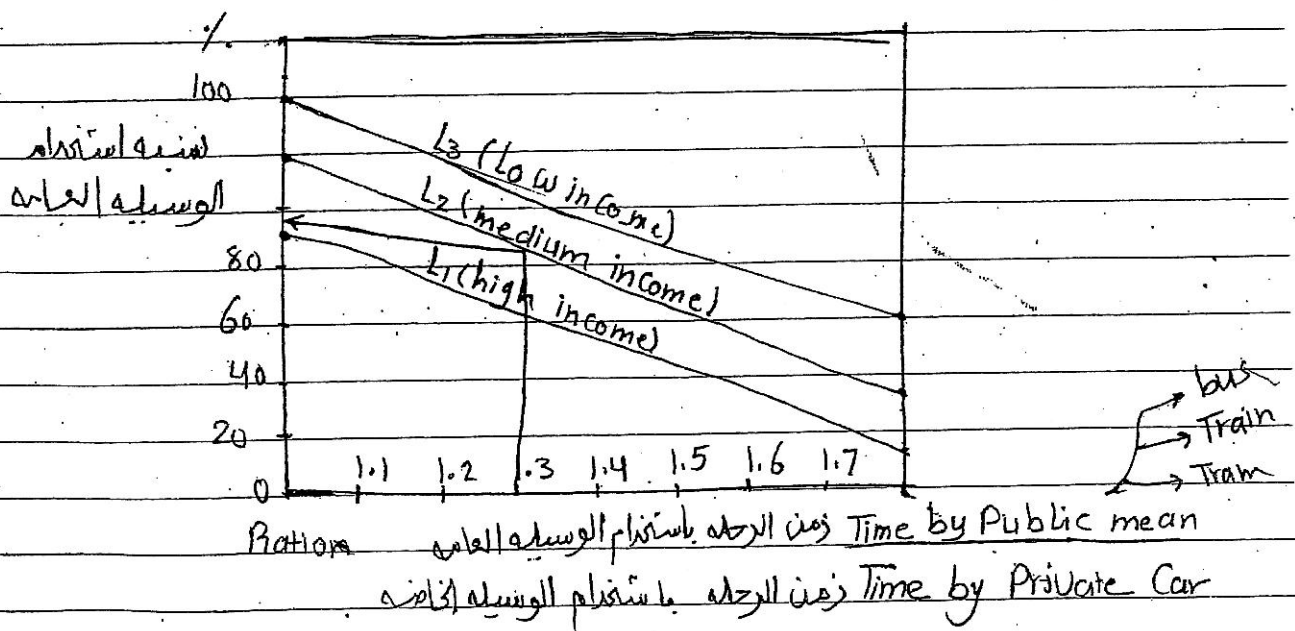 %
100
نسبه استخدام
الوسيله العامه
80
60
40
20
0
L3 (Low income)
L2 (medium income)
L1 (high income)
1.1 1.2 1.3 1.4 1.5 1.6 1.7
bus
Train
Tram
زمن الرحله باستخدام الوسيله العامه Time by Public mean
زمن الرحله باستخدام الوسيله الخاصه Time by Private Car